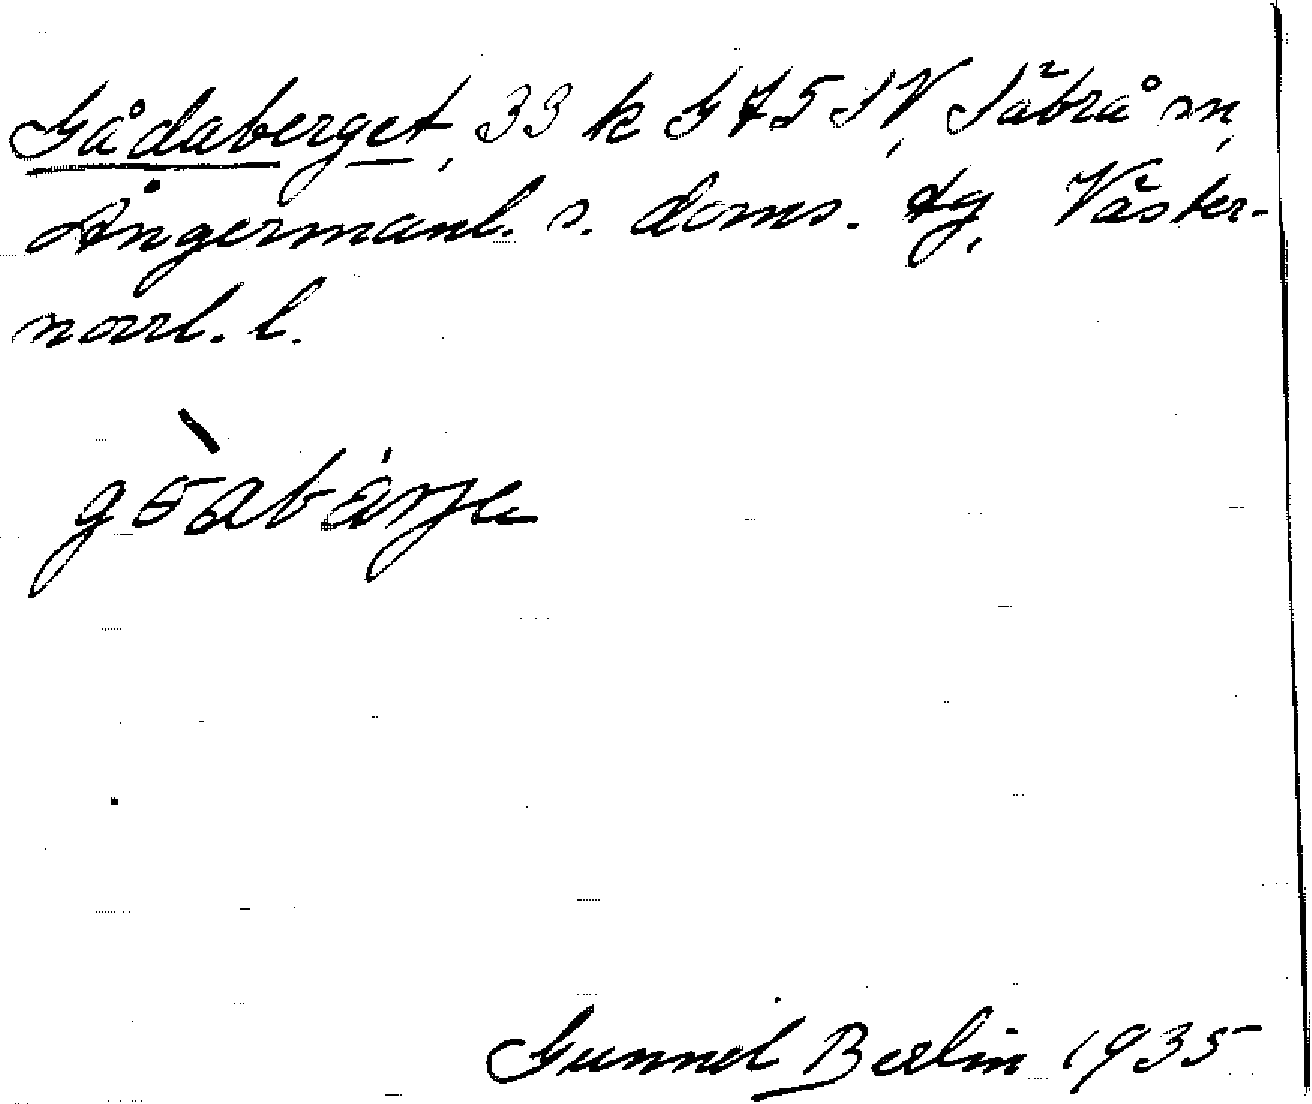 Gådaberget, 33 k G 75 SV, Säbrå sn,
Ångermanl. s. doms. tg, Väster-
norrl. l.
Gunnel Berlin 1935